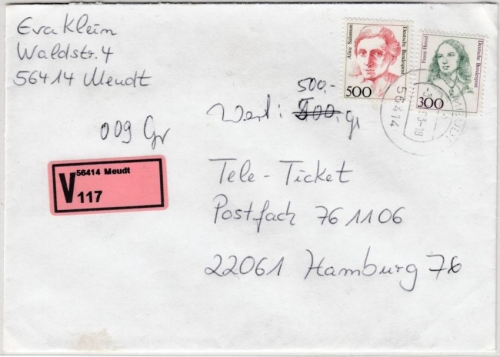 Eva Klein
Waldstr. 4
56414 Meudt
009 Gr
Wert: 500,-
V 56414 Meudt
117
500
Deutsche Bundespost
300
Deutsche Bundespost
56414
Tele-Ticket
Postfach 761106
22061 Hamburg 76